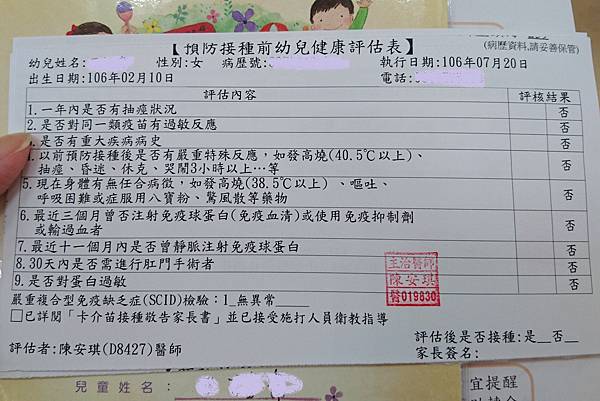 【預防接種前幼兒健康評估表】
(病歷資料,請妥善保管)
幼兒姓名:
性別:女
病歷號:
執行日期:106年07月20日
出生日期:106年02月10日
電話:
評估內容
評核結果
1.一年內是否有抽痙狀況
否
2.是否對同一類疫苗有過敏反應
否
是否有重大疾病病史
否
以前預防接種後是否有嚴重特殊反應,如發高燒(40.5℃以上)、
抽痙、昏迷、休克、哭鬧3小時以上…等
否
5.現在身體有無任合病徵,如發高燒(38.5℃以上) 、嘔吐、
呼吸困難或症服用八寶粉、驚風散等藥物
否
6.最近三個月曾否注射免疫球蛋白(免疫血清)或使用免疫抑制劑
或輸過血者
否
7.最近十一個月內是否曾靜脈注射免疫球蛋白
否
8.30天內是否需進行肛門手術者
否
9.是否對蛋白過敏
否
主治醫師
陳安琪
醫019830
嚴重複合型免疫缺乏症(SCID)檢驗:1_無異常____
□已詳閱「卡介苗接種敬告家長書」並已接受施打人員衛教指導
評估後是否接種:是__否__
評估者:陳安琪(D8427)醫師
家長簽名:
兒童姓名:
宜提醒